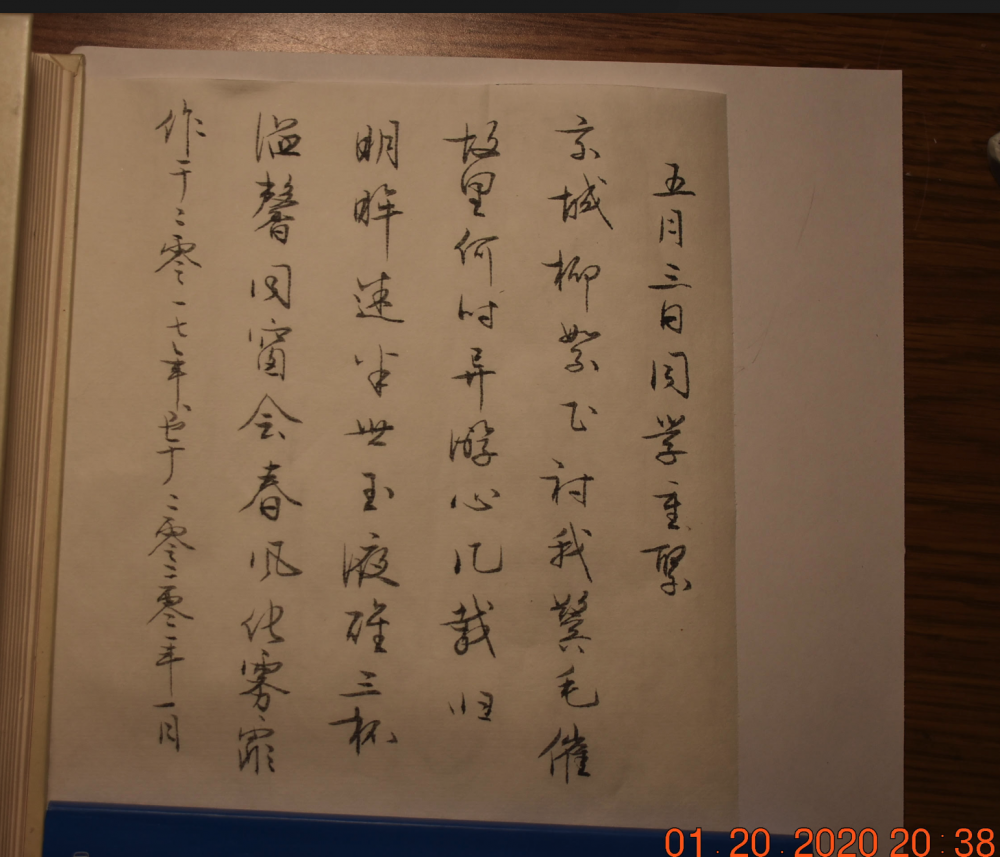 五月三日同学重聚
京城柳絮飞衬我鬓毛催
故里何时异游心几载归
明眸迷半世玉液三杯
溢馨同窗会春风化雾霏
作于二零一七年书于二零二零年一月
01.20.2020 20:38